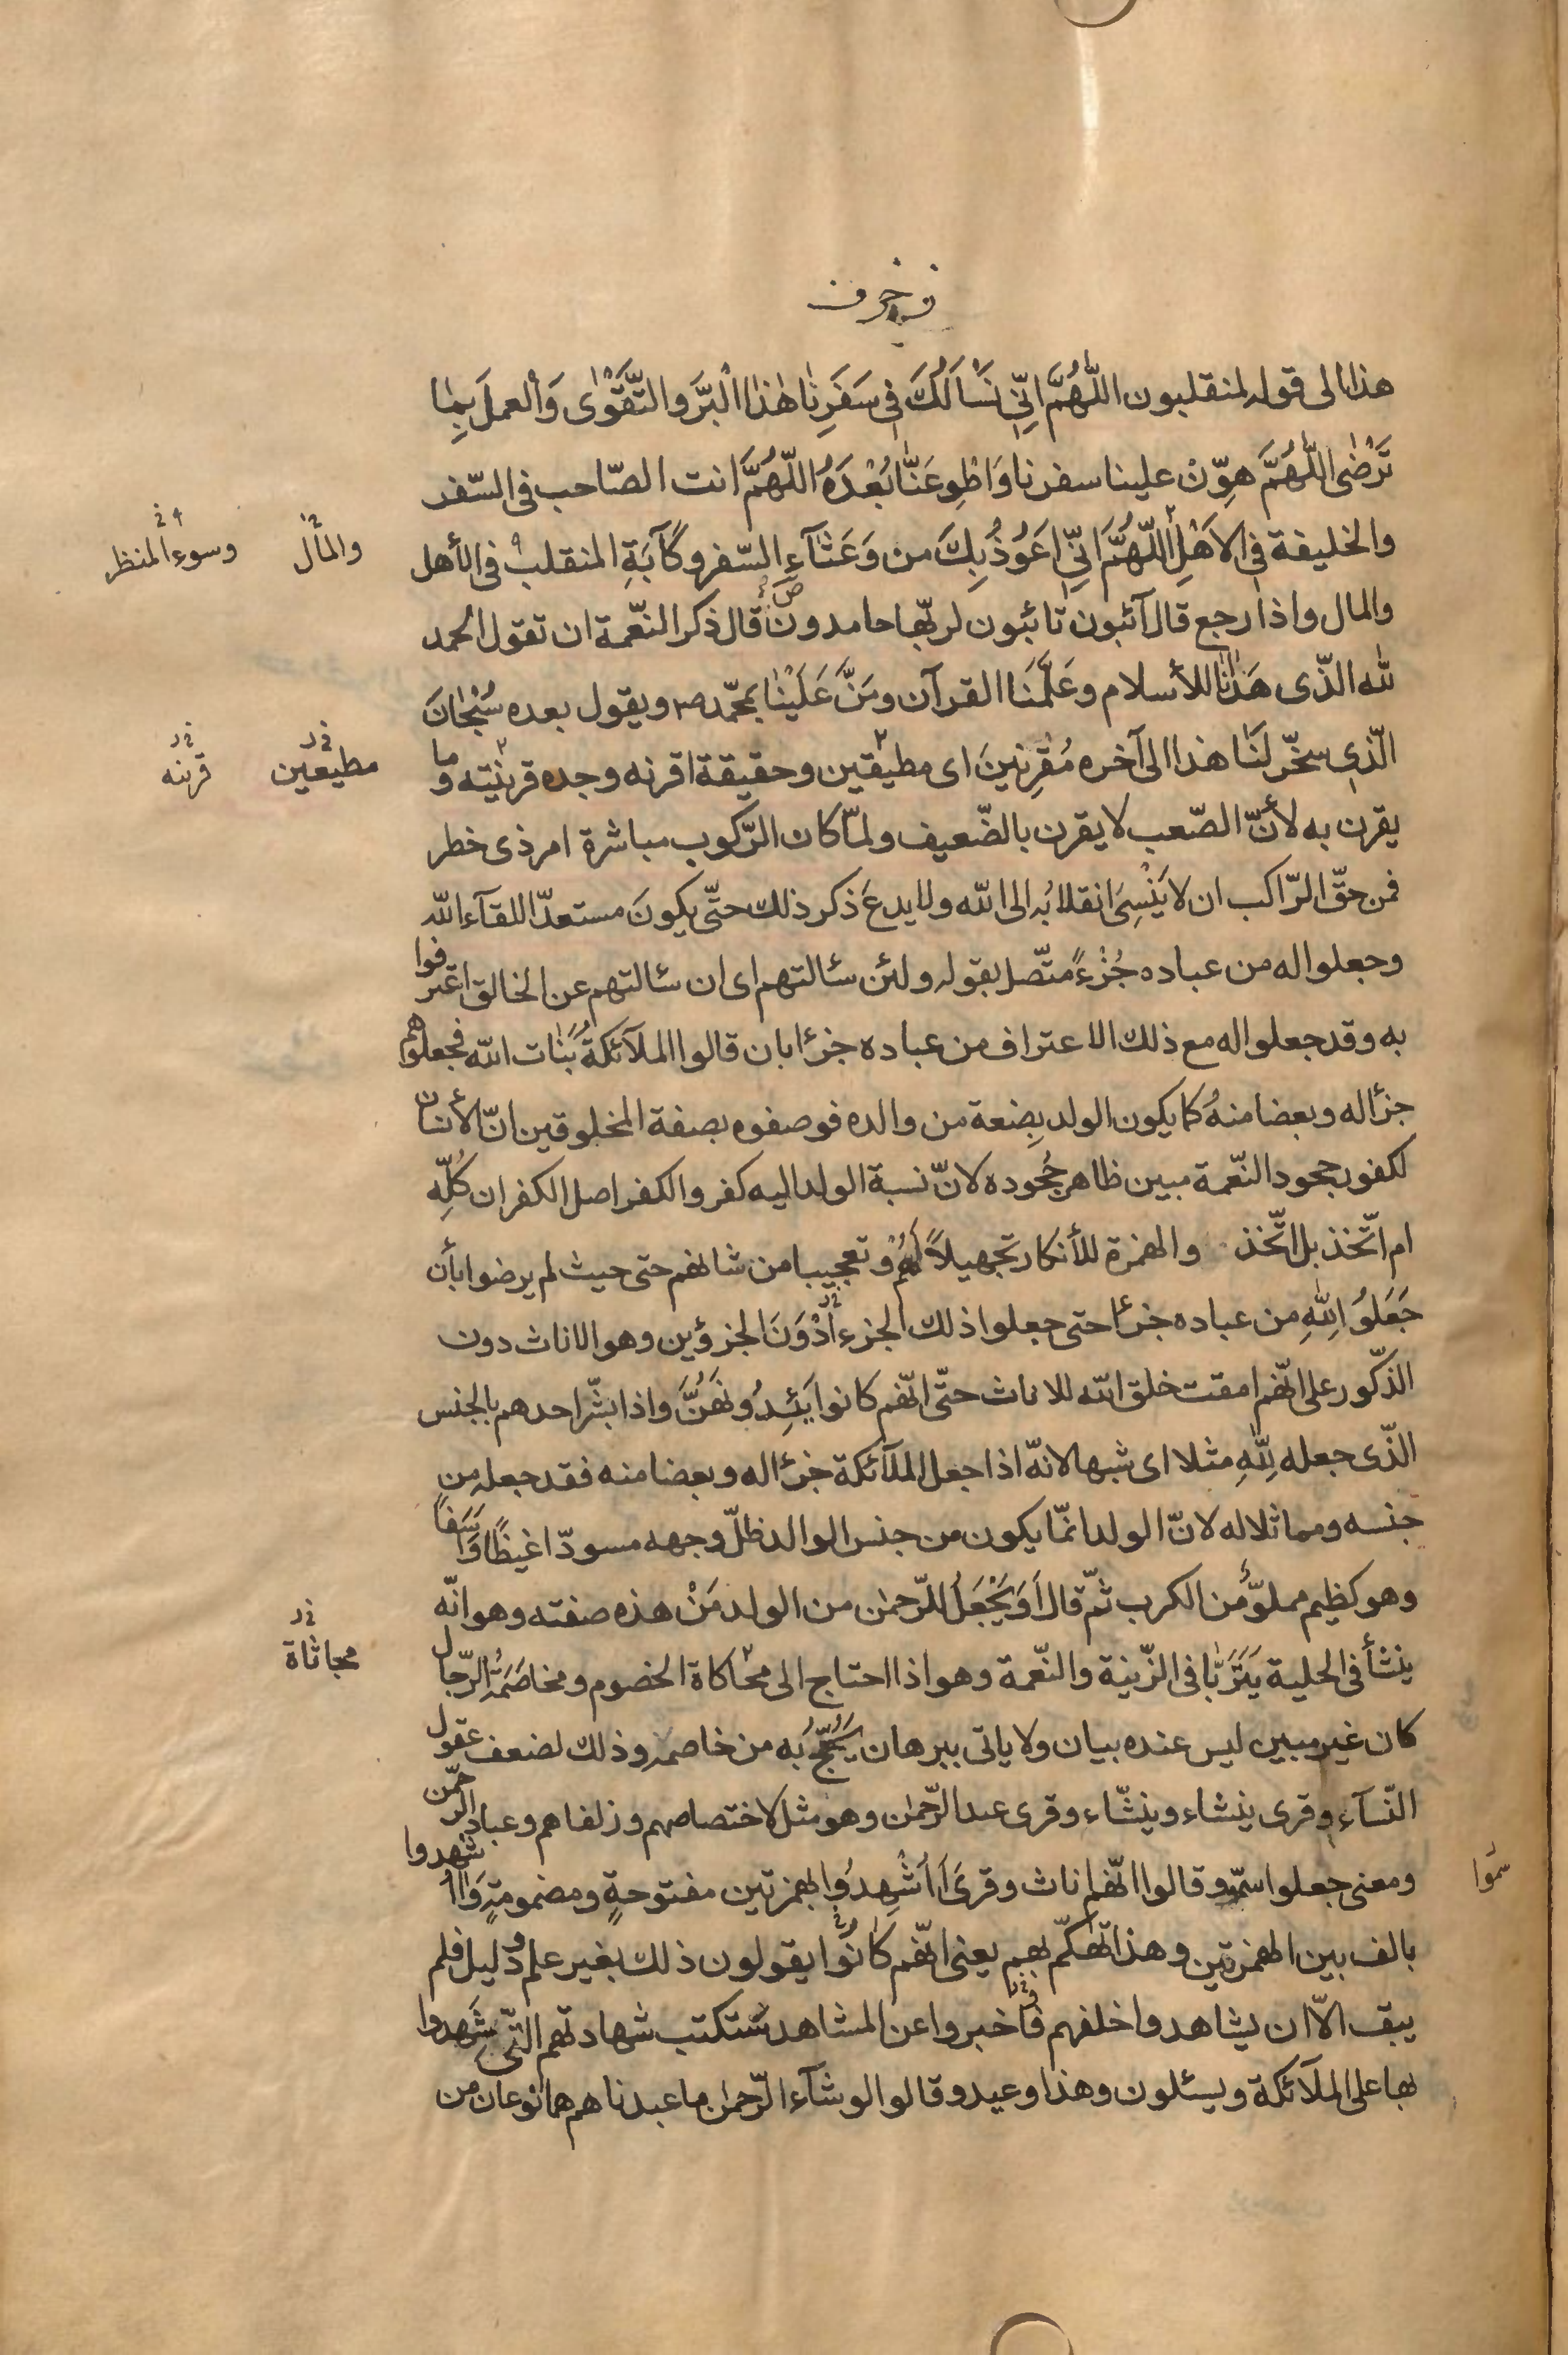 زخرف
هذا الى قوله لمنقلبون اللّٰهُمَّ اِنّى نَسْاَلُكَ فى سَفَرِنٰا هٰذا الْبَرَّ والتَّقْوٰى وَالْعملَ بِمٰا
تَرْضٰى اللّٰهُمَّ هوِّنْ علينا سفرنا وَاطْوِ عَنَّا بُعْدَهُ اللّٰهُمَّ انت الصّاحب فى السّفر
والخليفة فى الاَهْلِ اللّٰهُمَّ اِنّى اَعَوُذُ بِكَ من وَعَثٰآءِ السّفر وكَآبَةِ المنقلب فى الأهل
والمأل
وسوء المنظر
والمال واذا رجع قال آئبون تائبون لربّها حامدون قال ذكر النّعمة ان تقول الحمد
للّه الذّى هَدٰنٰا للأسلام وعَلَّمَنَا القرآن ومَنَّ عَلَيْنٰا بمحّمد ص ويقول بعده سُبْحٰانَ
الّذى سخّر لَنٰا هذا الى آخره مُقْرِنينَ اى مطيقين وحقيقة اقرنه وجده قرينته وما
مطيعين
قرنه
يقرن به لأنّ الصّعب لا يقرن بالضّعيف ولمّا كان الرّكوب مباشرة امر ذى خطر
فمن حقّ الرّاكب ان لا يَنْسِىَ انقلابُه الى اللّه ولا يدعَ ذكر ذلك حتّى يكونَ مستعدّا للقآء اللّه
وجعلوا له من عباده جُزْءً متّصل بقوله ولئن سئالتهم اى ان سئالتهم عن الخالق اعترفوا
به وقد جعلوا له مع ذلك الاعتراف من عباده جزئا بان قالوا الملآئكةُ بَنٰات اللّه فجعلوهم
جزئا له وبعضا منهُ كما يكون الولد بِضعة من والده فوصفوه بصفة المخلوقين انّ الأنسان
لكفور جحود النّعمة مبين ظاهر جُحوده لانّ نسبة الولد اليه كفر والكفر اصل الكفران كُلِّه
ام اتّخذ بل اتّخذ والهمزة للأنكار تجهيلاً لَهُمْ وتعجيبا من شانهم حتى حيث لم يرضوا بأن
جَعَلوُا لِلّٰهِ من عباده جزءًا حتى جعلوا ذلك الجزء اَدْوَنَ الجزؤين وهو الاناث دون
الذّكور على انّهم امقت خلق اللّه للاناث حتّى انّهم كانوا يَئِدوُنَهُنَّ واذا بشّر احدهم بالجنس
الذّى جعله لِلّٰهِ مثلا اى شبها لانّه اذا جعل الملآئكة جزئا له وبعضا منه فقد جعله من
جنسه ومماثلا له لانّ الولد انمّا يكون من جنس الوالد ظلّ وجهه مسودّا غيظًا واَسَفاً
وهو كظيم مملوٌّ من الكرب ثمّ قال اَوَ يَجْعَلُ للرّحمٰن من الولد مَنْ هذه صفته وهو انّه
ينشأ فى الحلية يَتَرَبّٰا فى الزّينة والنّعمة وهو اذا احتاج الى محٰاكاة الخصوم ومخاصَمَةِ الرّجال
مجاثاة
كان غير مبين ليس عنده بيان ولا ياتى ببرهان يَحُجُّ به من خاصمه وذلك لضعف عقول
النّسآء وقرى ينشاء وينشّاء وقرى عند الرّحمٰن وهو مثل لاختصاصهم وزلفاهم وعباد الرّحمٰن
ومعنى جعلوا سمّو وقالوا انّهم اناث وقرىَ اَاُشْهِدُوا بهمزتين مفتوحةٍ ومضمومةٍ وَاأُشهدوا
سمّوا
بالف بين الهمزتين وهذا تهٰكّم بهم يعنى انّهم كٰانُوا يقولون ذلك بغير علم ودليل فلم
يبق الاّ ان يشاهدوا خلقهم فاخبروا عن المشاهد ستكتب شهادتهم التّى شَهِدوا
بها على الملآئكة ويسئلون وهذا وعيد وقالوا لو شآء الرّحمٰن ما عبدناهم هما نَوْعان من